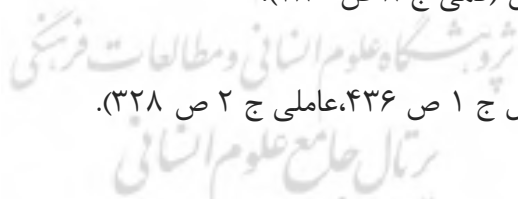 پژوهشگاه علوم انسانی و مطالعات فرهنگی
ج ۱ ص ۴۳۶،عاملی ج ۲ ص ۳۲۸).
پرتال جامع علوم انسانی